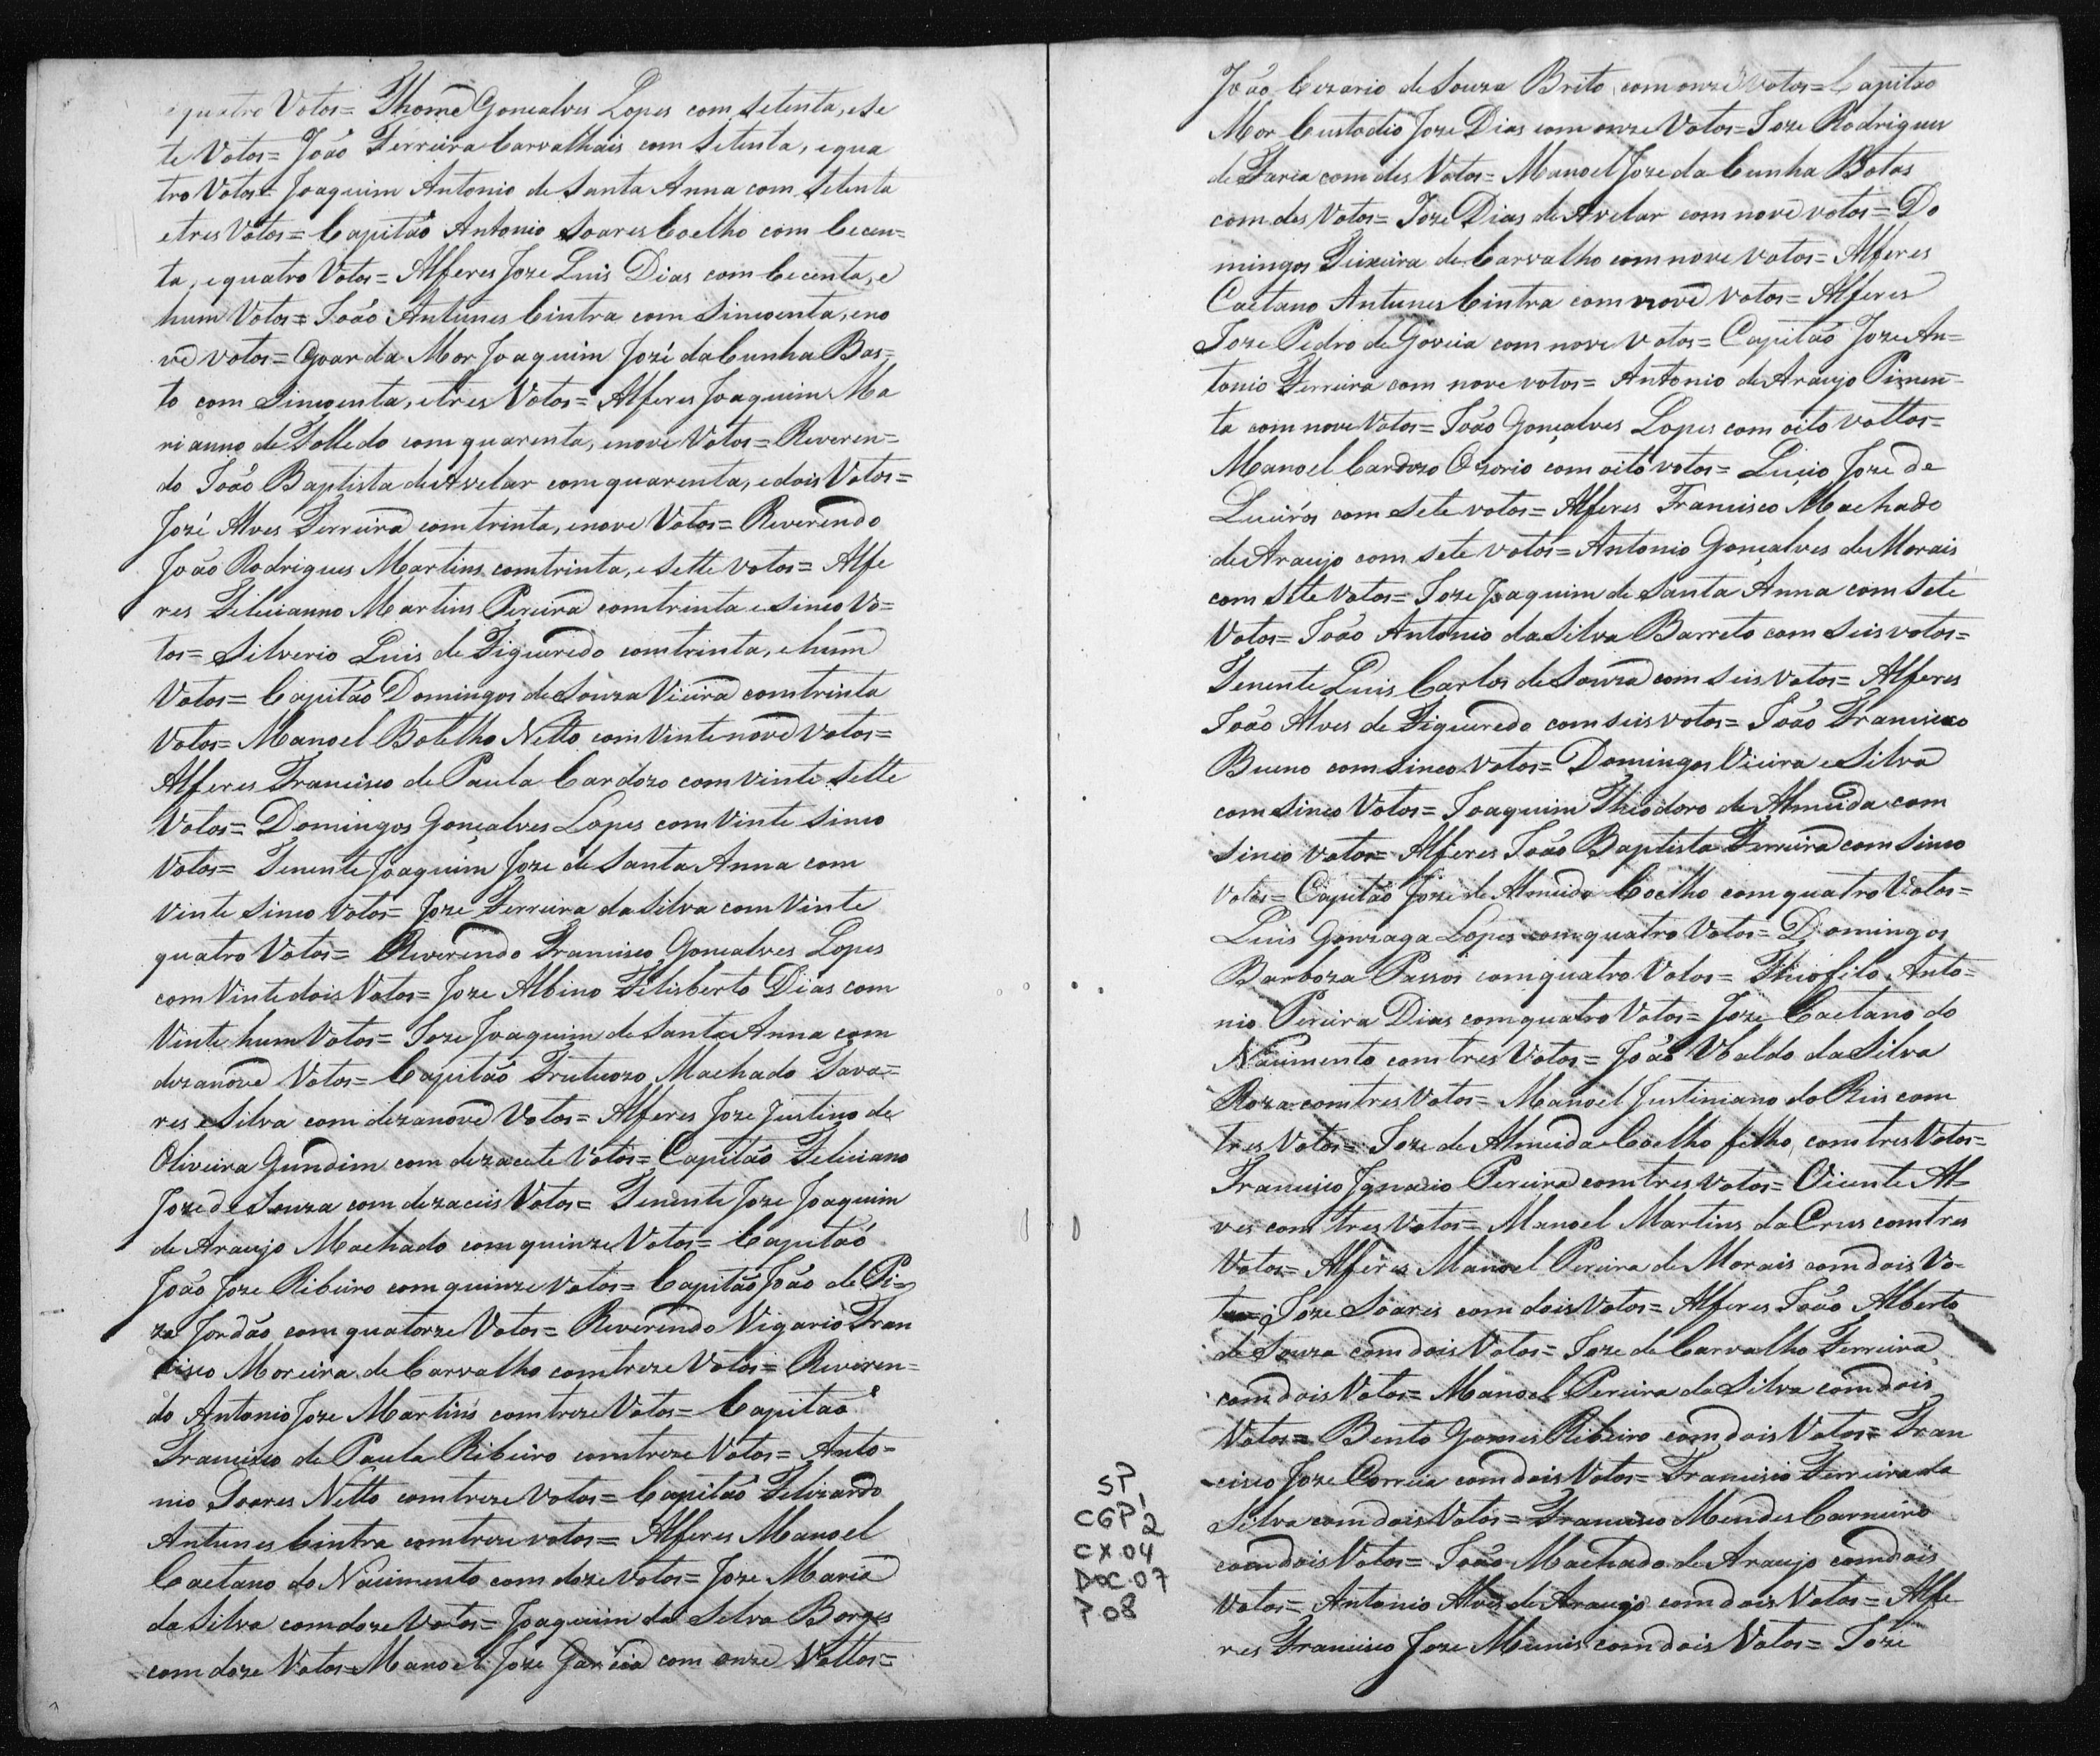 e quatro Votos= Thomé Gonçalves Lopes com setenta, e se
te Votos= João Ferreira Carvalhais com setenta, e qua
tro Votos= Joaquim Antonio de Santa Anna com setenta
e tres Votos= Capitão Antonio Soares Coelho com Cecen=
ta, e quatro Votos= Alferes Joze Luis Dias com Cecenta, e
hum Votos= João Antunes Cintra com Sincoenta, e no
ve votos= Goarda Mor Joaquim Jozé da Cunha Bas=
to com Sincoenta, e tres Votos= Alferes Joaquim Ma
rianno de Tolledo com quarenta, e nove Votos= Reveren=
do João Baptista de Avelar com quarenta, e dois Votos=
Jozé Alves Ferreira com trinta, e nove Votos= Reverendo
João Rodrigues Martins com trinta, e sette votos= Alfe
res Felicianno Martins Pereira com trinta e sinco Vo=
tos= Silverio Luis de Figueredo com trinta, e hum
Votos= Capitão Domingos de Souza Vieira com trinta
Votos= Manoel Botelho Netto com Vinte nove Votos=
Alferes Francisco de Paula Cardozo com Vinte sette
Votos= Domingos Gonçalves Lopes com Vinte sinco
Votos= Tenente Joaquim Joze de Santa Anna com
Vinte sinco Votos= Joze Ferreira da Silva com Vinte
quatro Votos= Reverendo Francisco Gonçalves Lopes
com Vinte dois Votos= Joze Albino Felisberto Dias com
Vinte hum Votos= Joze Joaquim de Santa Anna com
dezanove Votos= Capitão Frutuozo Machado Tava=
res e Silva com dezanove Votos= Alferes Joze Justino de
Oliveira Gundim com dezacete Votos= Capitão Feliciano
Joze de Souza com dezaceis Votos= Tenente Joze Joaquim
de Araujo Machado com quinze Votos= Capitão
João Joze Ribeiro com quinze votos= Capitão João de Pi=
za Jordão com quatorze Votos= Reverendo Vigario Fran
cisco Moreira de Carvalho com treze Votos= Reveren=
do Antonio Joze Martins com treze Votos= Capitão
Francisco de Paula Ribeiro com treze Votos= Anto=
nio Soares Netto com treze votos= Capitão Felizardo
Antunes Cintra com treze votos= Alferes Manoel
Caetano do Nacimento com doze votos= Joze Maria
da Silva com doze Votos= Joaquim da Silva Borges
com doze Votos= Manoel Joze Garcia com onze Vottos=
João Cezario de Souza Brito com onze votos= Capitão
Mor Custodio Joze Dias com onze Votos= Joze Rodrigues
de Faria com des Votos= Manoel Joze da Cunha Bastos
com des Votos= Joze Dias de Avelar com nove votos= Do
mingos Teixeira de Carvalho com nove votos= Alferes
Caetano Antunes Cintra com nove votos= Alferes
Joze Pedro de Goveia com nove votos= Capitão Joze An=
tonio Ferreira com nove votos= Antonio de Araujo Pimen=
ta com nove Votos= João Gonçalves Lopes com oito vottos=
Manoel Cardozo Ozorio com oito votos= Lucio Joze de
com sete votos= Alferes Francisco Machado
de Araujo com sete votos= Antonio Gonçalves de Morais
com sete votos= Joze Joaquim de Santa Anna com sete
Votos= João Antonio da Silva Barreto com seis votos=
Tenente Luis Carlos de Souza com seis votos= Alferes
João Alves de Figueredo com seis votos= João Francisco
Bueno com sinco Votos= Domingos Vieira e Silva
com sinco Votos= Joaquim Theodoro de Almeida com
sinco Votos= Alferes João Baptista Ferreira com sinco
Votos= Capitão Joze de Almeida Coelho com quatro Votos=
Luis Gonzaga Lopes com quatro Votos= Domingos
Barboza Passos com quatro Votos= Theofilo Anto=
nio Pereira Dias com quatro Votos= Joze Caetano do
Nacimento com tres Votos= João Ubaldo da Silva
Roza com tres Votos= Manoel Justiniano do Reis com
tres Votos= Joze de Almeida Coelho filho, com tres Votos=
Francisco Ignacio Pereira com tres votos= Vicente Al=
ves com tres Votos= Manoel Martins da Crus com tres
Votos= Alferes Manoel Pereira de Morais com dois Vo=
tos= Joze Soares com dois Votos= Alferes João Alberto
de Souza com dois Votos= Joze de Carvalho Ferreira
com dois Votos= Manoel Pereira da Silva com dois
Votos= Bento Gomes Ribeiro com dois Votos= Fran
cisco Joze Correia com dois Votos= Francisco Ferreira da
Silva com dois Votos= Francisco Mendes Carneiro
com dois Votos= João Machado de Araujo com dois
Votos= Antonio Alves de Araujo com dois Votos= Alfe
res Francisco Joze Munis com dois Votos= Joze
SP 1
CGP 2
CX.04
DOC.07
P.08